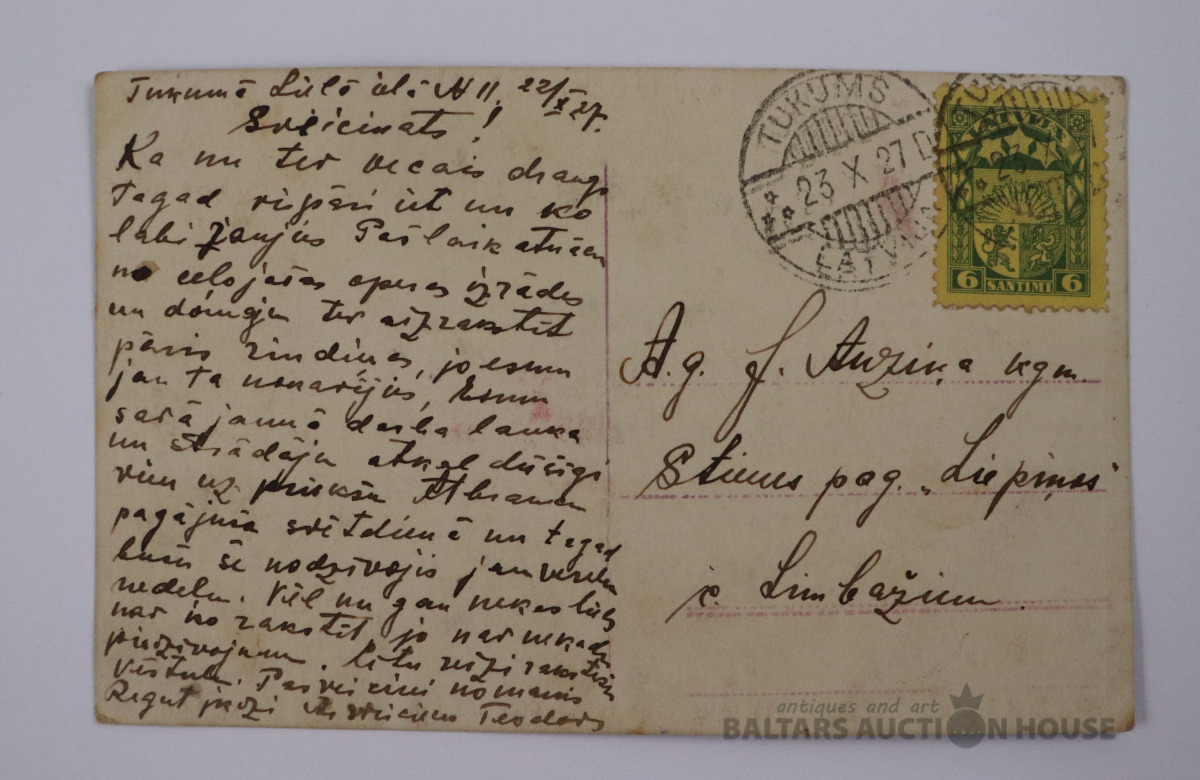 Tukumā Lielā ielā № 11, 22/X 27.
Sveicinats!
Ka nu ter vecais draugs
tagad vispāri iet un ko
labi žaujus Pašlaik atnācu
no ceļojašas operas izrādes
un domāju tev aizrakstīt
pāris rindiņas, jo esmu
jau ta nokavējis, Esmu
savā jaunā darba lauka
un strādāju atkal dūšīgi
vien uz priekšu Atbraucu
pagājušā svētdienā un tagad
būšu še nodzīvojis jau veselu
nedeļu. Vēl nu gan nekas liels
nav ko rakstīt jo nav nekādu
piedzīvojumu. Citu reizi rakstīšu
vēstuli. Pasveicini no manis
Ar sveicienu Teodors
TUKUMS
23 X 27 D
LATVIJA
LATVIJA
6 SANTIMI 6
A.g. J. Auziņa kgm.
Stienes pag. „Liepiņas"
c. Limbažiem.
antiques and art
BALTARS AUCTION HOUSE